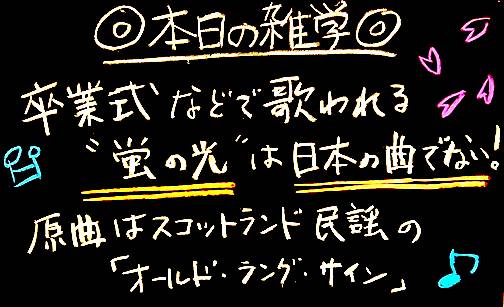 ◎本日の雑学◎
卒業式などで歌われる
"蛍の光"は日本の曲でない!
原曲はスコットランド民謡の
「オールド・ラング・サイン」